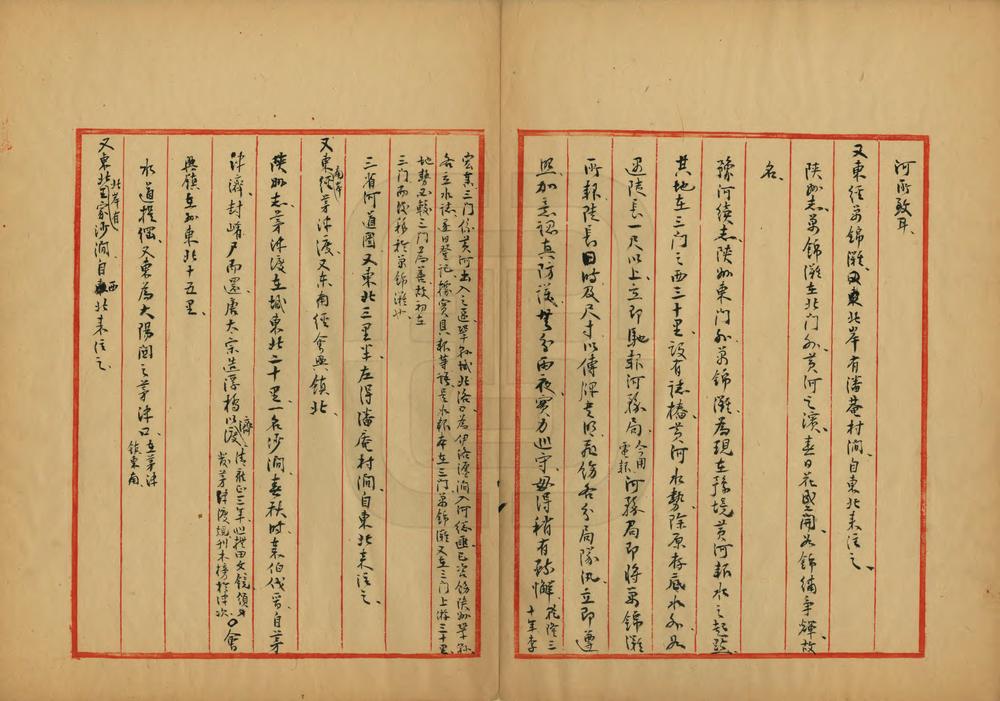 河所敦耳
又東經萬錦灘北岸有潘菴村澗自東北來注之
陝州志萬錦灘在北门外黃河之濱春日花盛開如錦繡爭輝故
名
豫河續志陝州東门外萬錦灘為現在豫境黃河報水之起點
其地在三门之西三十里設有誌樁黃河水勢除原存底水外如
遇陡長一尺以上立即馳報河務局今用電報河務局即將萬錦灘
所報陡長日時及尺寸以傳牌書明嚴飭各分局隊汛立即遵
照加意認真防護無分雨夜實力巡守毋得稍有疏懈乾隆三十年李
宏葉三门係黃河出入之區鞏縣城北洛口為伊洛瀍澗入河總匯已咨飭陝州鞏縣
各立水誌逐日登記據實具報等語是水報本在三门萬錦灘又在三门上游三十里
地勢又較三门為善故初在
三门而後移於萬錦灘也
三省河道圖又東北三里半左得潘庵村澗自東北來注之
又東經南岸茅津渡又东南經會興镇北
陝州志茅津渡在城東北二十里一名沙澗春秋時秦伯伐晉自茅
津濟封崤尸而還唐太宗造浮橋以濟渡清雍正三年巡撫田文鏡領
發茅津渡規刊木榜於津次〇會
興鎮在州東北十五里
水道提綱又東為大陽關之茅津口在茅津鎮東南
又東北北岸有圂家沙澗自西北來注之